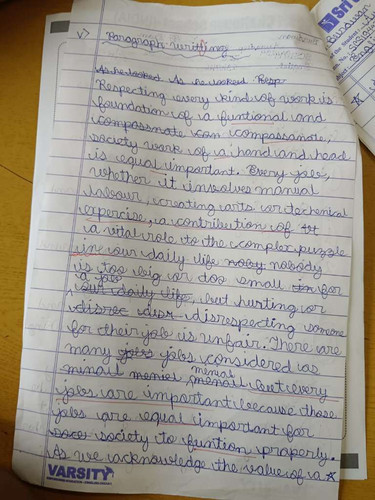 v) Paragraph writting
As he looked As he looked Resp
Respecting every kind of work is
foundation of a funtional and
compassnate can compassionate,
society work of a hand and head
is equal important. Every job,
whether it involves manual
labour, creating arts or technical
expercise, a contribution of
a vital role to the complex puzzle
in our daily life nobody
is too big or too small for
a job
our daily life, but hurting or
disrec disr disrespecting someone
for their job is unfair. There are
many jobs jobs considered as
menial
minail menial, menial but every
jobs are important because those
jobs are equal important for
society to funtion properly.
As we acknowledge the value of a
VARSITY